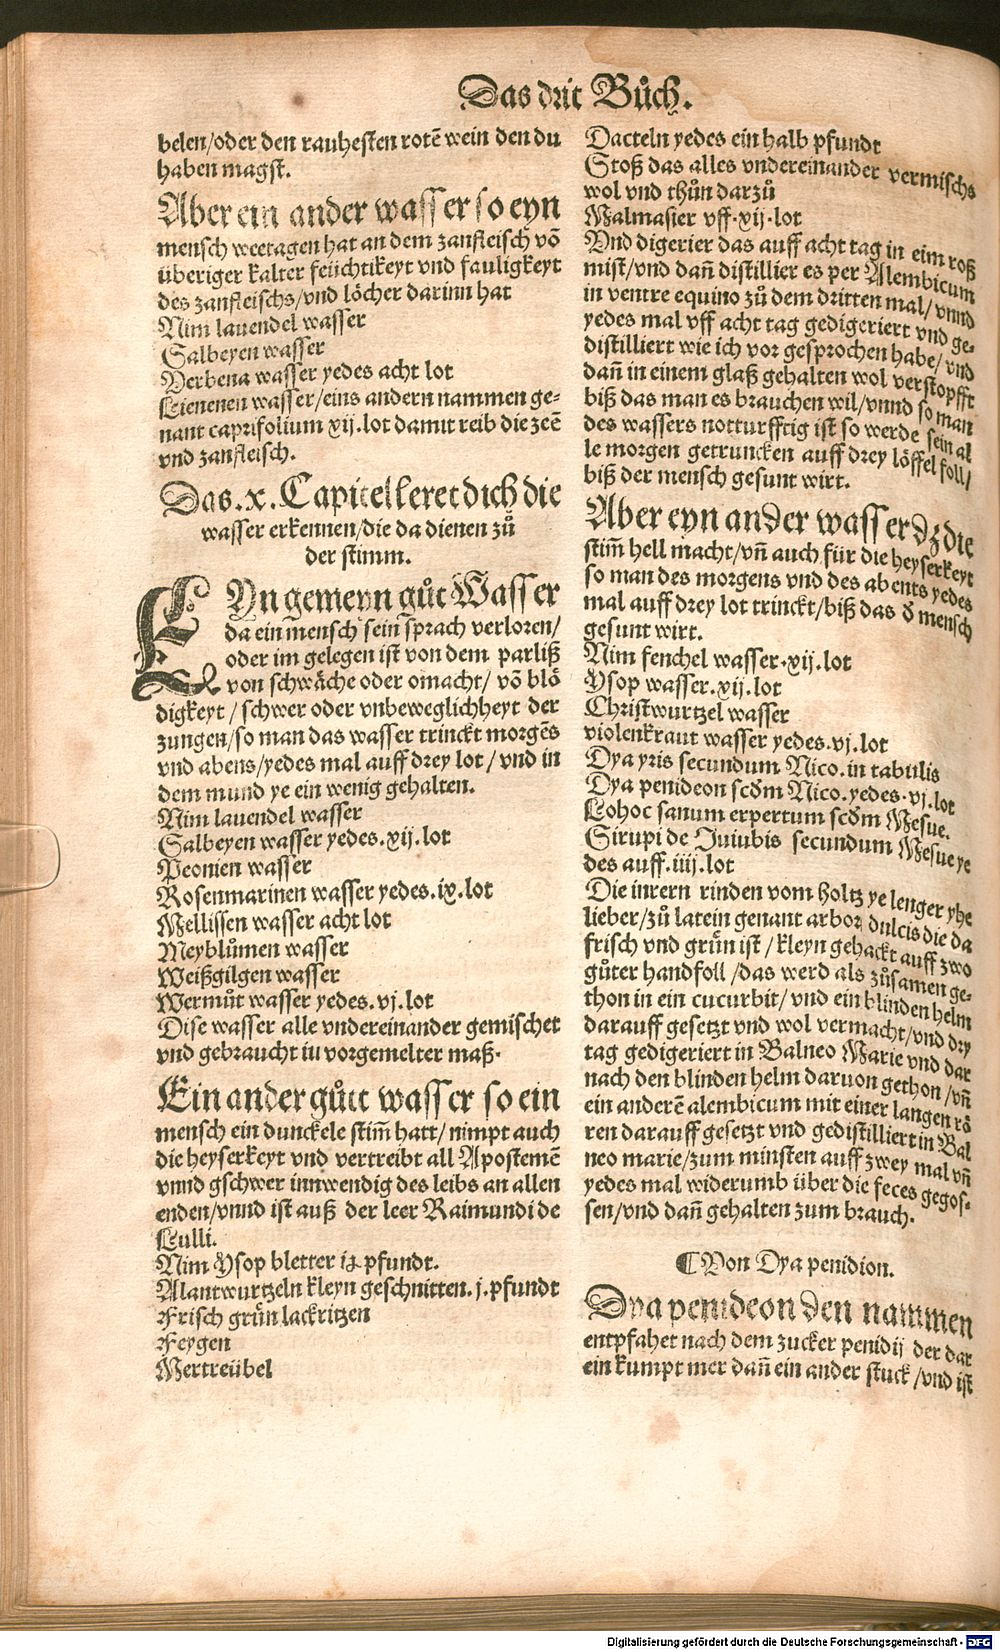 Das drit Bůch.
belen/oder den rauhesten rotē wein den du
haben magst.
Aber ein ander wasser so eyn
mensch weetagen hat an dem zanfleisch vō
überiger kalter feüchtikeyt vnd fauligkeyt
des zanfleischs/vnd löcher darinn hat
Nim lauendel wasser
Salbeyen wasser
Verbena wasser yedes acht lot
Lienenen wasser/eins andern nammen ge-
nant caprifolium xij.lot damit reib die zeē
vnd zanfleisch.
Das.x.Capitel leret dich die
wasser erkennen/die da dienen zů
der stimm.
EYn gemeyn gůt Wasser
da ein mensch sein sprach verloren/
oder im gelegen ist von dem parliß
von schwäche oder omacht/ vō blö
digkeyt / schwer oder vnbeweglichheyt der
zungen/so man das wasser trinckt morgēs
vnd abens/yedes mal auff drey lot / vnd in
dem mund ye ein wenig gehalten.
Nim lauendel wasser
Salbeyen wasser yedes.xij.lot
Peonien wasser
Rosenmarinen wasser yedes.ix.lot
Mellissen wasser acht lot
Meyblůmen wasser
Weißgilgen wasser
Wermůt wasser yedes.vj.lot
Dise wasser alle vndereinander gemischet
vnd gebraucht in vorgemelter maß.
Ein ander gůtt wasser so ein
mensch ein dunckele stim̄ hatt/ nimpt auch
die heyserkeyt vnd vertreibt all Apostemē
vnnd gschwer innwendig des leibs an allen
enden/vnnd ist auß der leer Raimundi de
Lulli.
Nim Ysop bletter iꝫ pfundt.
Alantwurtzeln kleyn geschnitten.j.pfundt
Frisch grün lackritzen
Feygen
Mertreübel
Dacteln yedes ein halb pfundt
Stoß das alles vndereinander vermischs
wol vnd thůn darzů
Malmasier vff.xij.lot
Vnd digerier das auff acht tag in eim roß
mist/vnd dan̄ distillier es per Alembicum
in ventre equino zů dem dritten mal/ vnnd
yedes mal vff acht tag gedigeriert vnd ge-
distilliert wie ich vor gesprochen habe/ vnd
dan̄ in einem glaß gehalten wol verstopfft
biß das man es brauchen wil/vnnd so man
des wassers notturfftig ist so werde sein al
le morgen getruncken auff drey löffel foll/
biß der mensch gesunt wirt.
Aber eyn ander wasser dz die
stim̄ hell macht/vn̄ auch für die heyserkeyt
so man des morgens vnd des abents yedes
mal auff drey lot trinckt/biß das d̄ mensch
gesunt wirt.
Nim fenchel wasser.xij.lot
Ysop wasser.xij.lot
Christwurtzel wasser
violenkraut wasser yedes.vj.lot
Dya yris secundum Nico.in tabulis
Dya penideon scd̄m Nico.yedes.vj.lot
Lohoc sanum expertum scd̄m Mesue.
Sirupi de Juiubis secundum Mesue ye
des auff.iiij.lot
Die inrern rinden vom holtz ye lenger yhe
lieber/zů latein genant arbor dulcis die da
frisch vnd grün ist / kleyn gehackt auff zwo
gůter handfoll /das werd als zůsamen ge-
thon in ein cucurbit/vnd ein blinden helm
darauff gesetzt vnd wol vermacht/vnd dry
tag gedigeriert in Balneo Marie vnd dar
nach den blinden helm daruon gethon /vn̄
ein anderē alembicum mit einer langen rö
ren darauff gesetzt vnd gedistilliert in Bal
neo marie/zum minsten auff zwey mal vn̄
yedes mal widerumb über die feces gegos-
sen/vnd dan̄ gehalten zum brauch.
¶Von Dya penidion.
Dya penideon den nammen
entpfahet nach dem zucker penidij der dar
ein kumpt mer dan̄ ein ander stuck /vnd ist
Digitalisierung gefördert durch die Deutsche Forschungsgemeinschaft - DFG